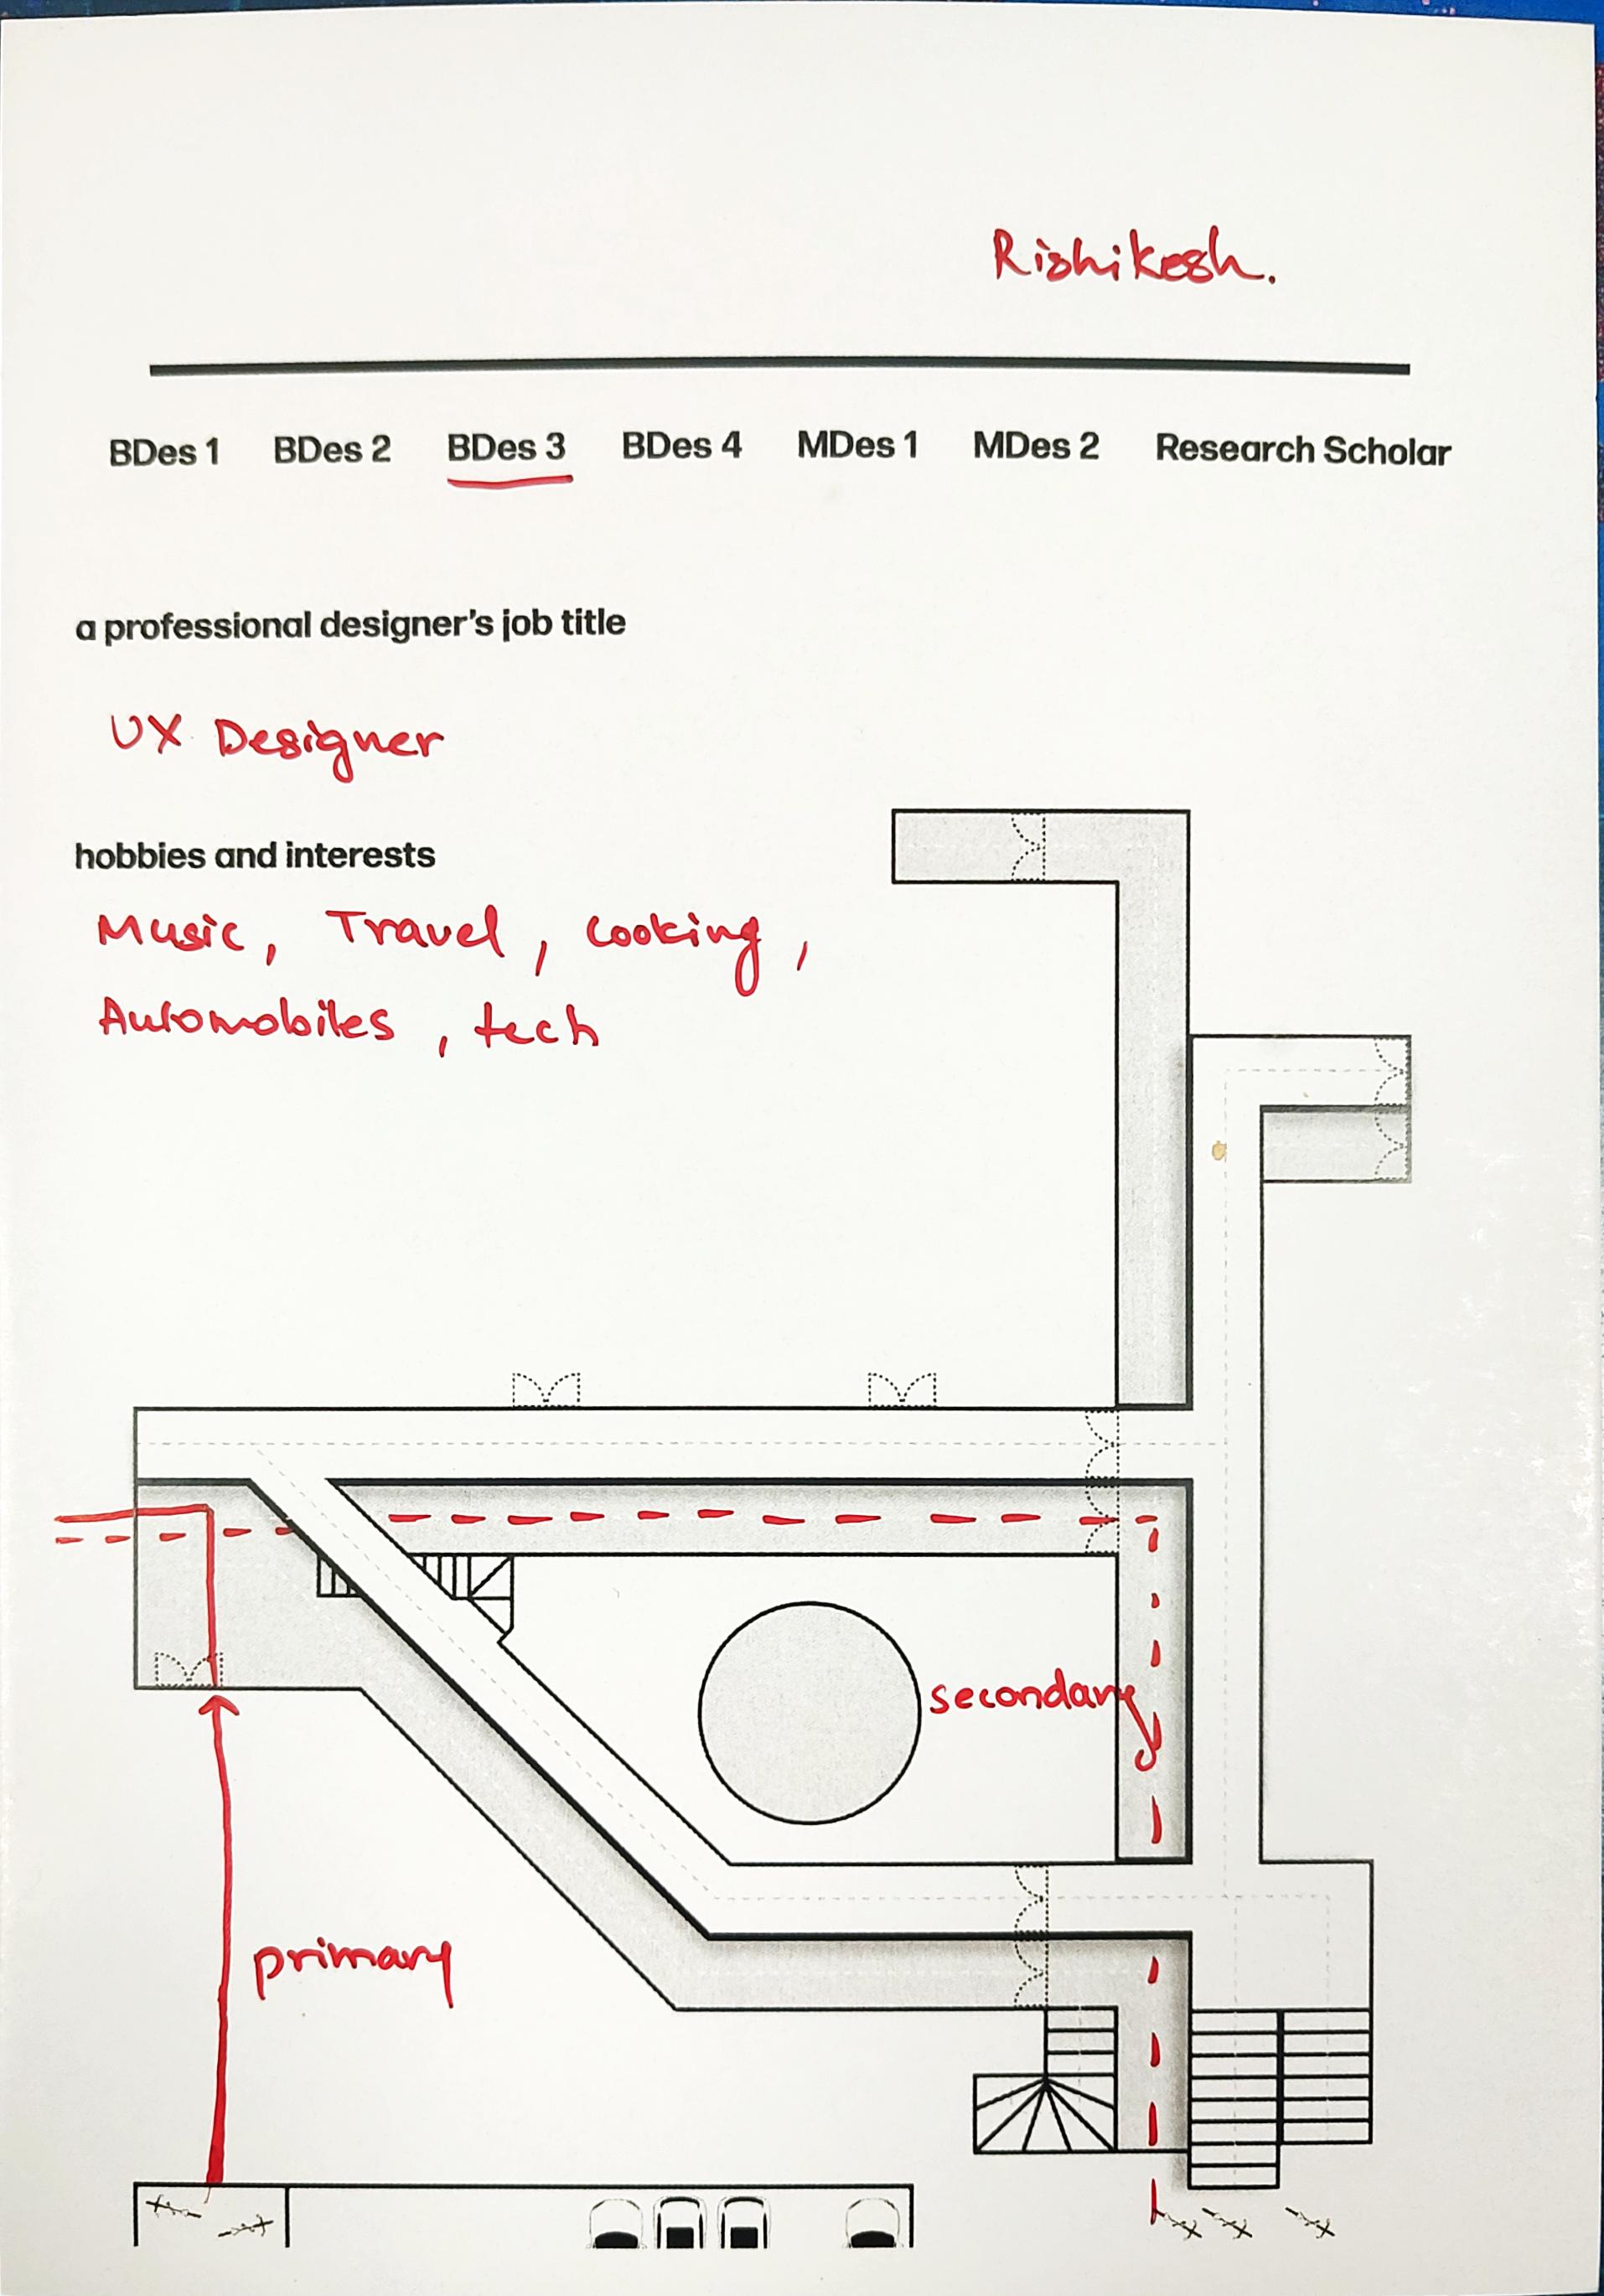 Rishikesh.
BDes 1 BDes 2 BDes 3 BDes 4 MDes 1 MDes 2 Research Scholar
a professional designer's job title
UX Designer
hobbies and interests
Music, Travel, cooking,
Automobiles, tech
secondary
primary